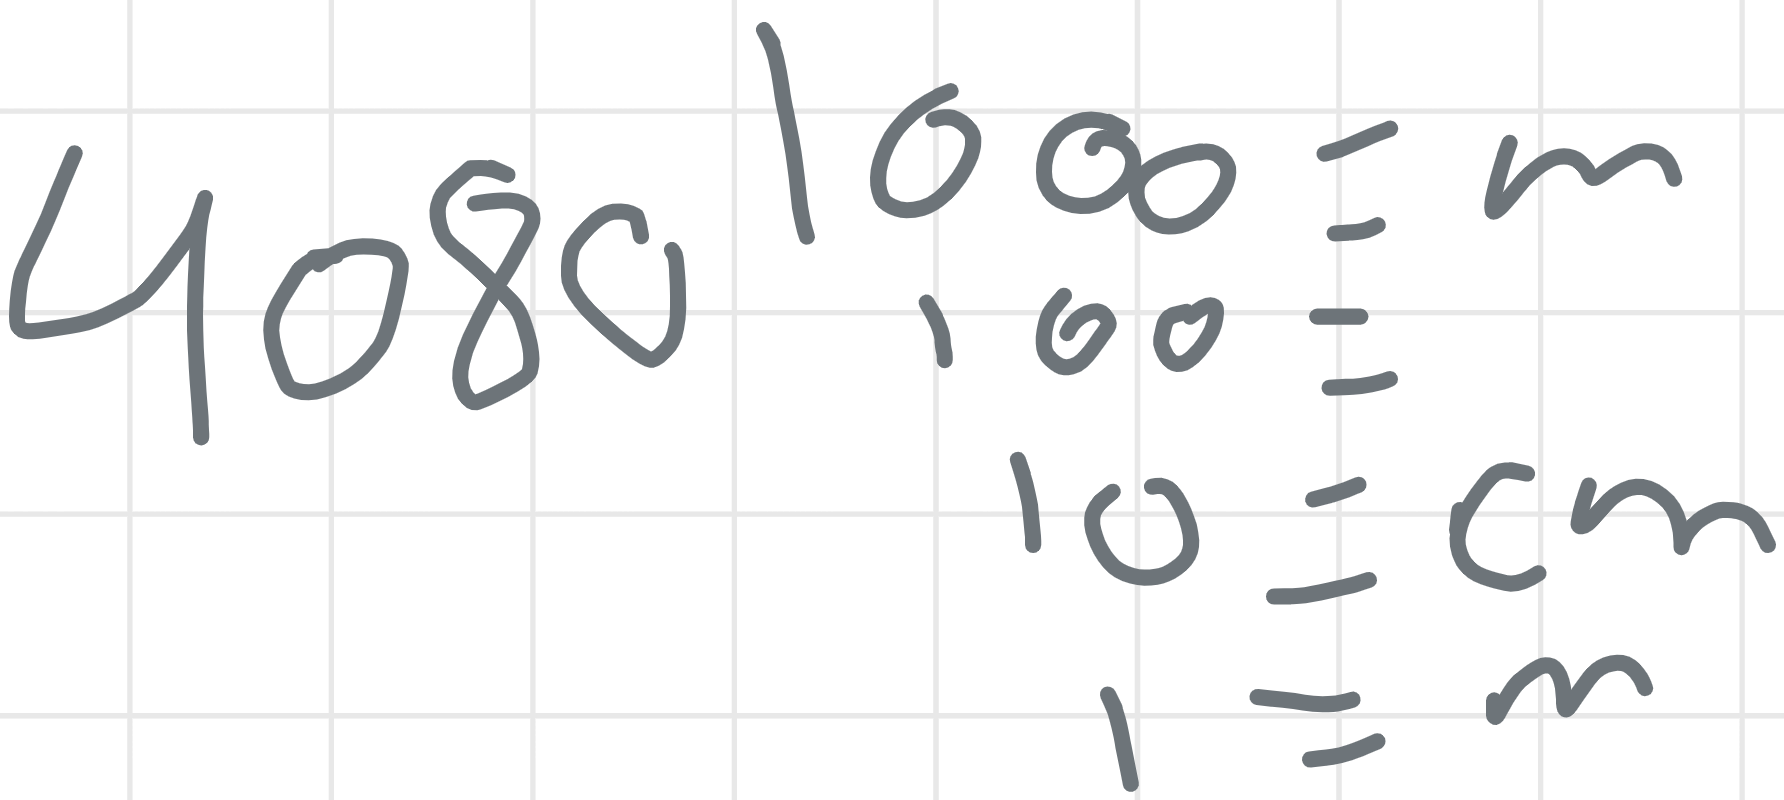 4080
1000 = m
100 =
10 = cm
1 = m